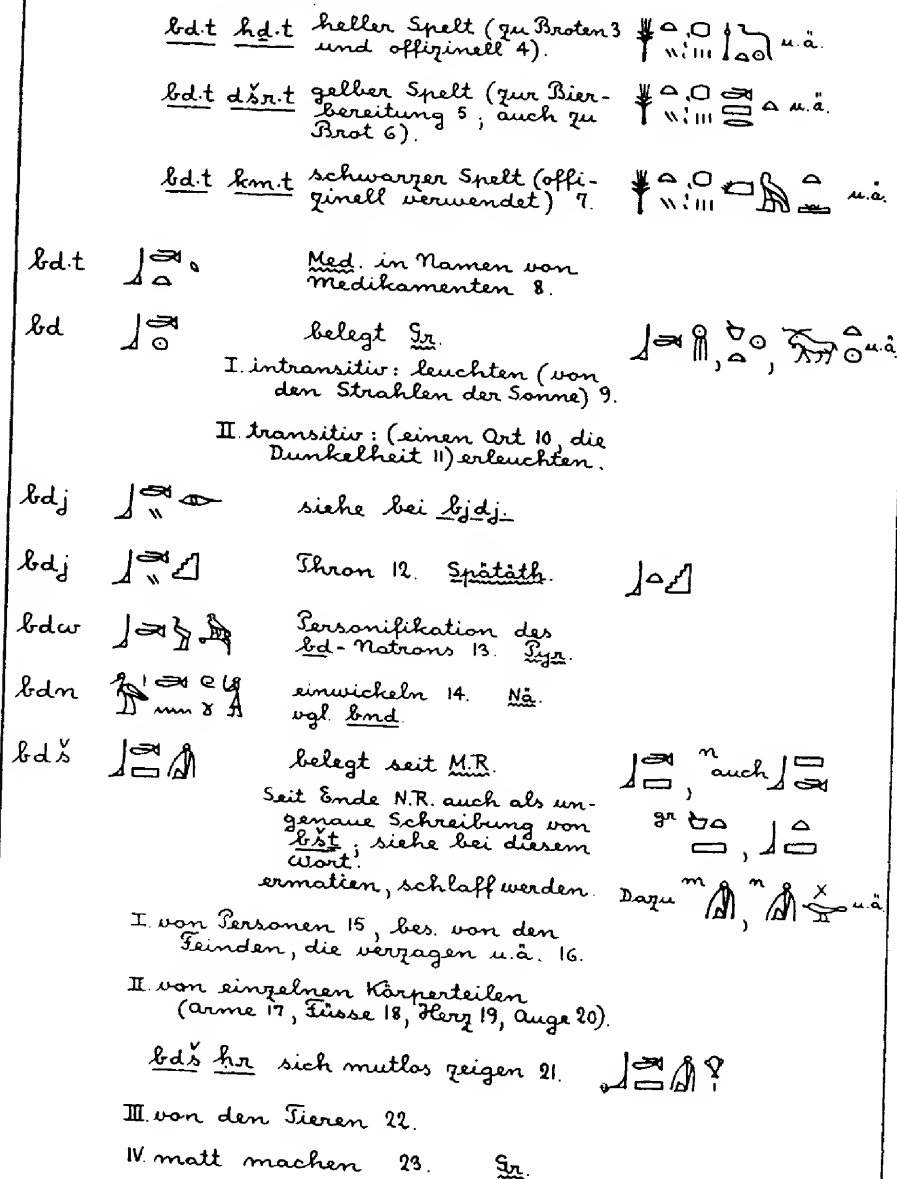 bd.t ḥḏ.t heller Spelt (zu Broten 3 u.ä.
und offizinell 4).
bd.t dšr.t gelber Spelt (zur Bier- u.ä.
bereitung 5, auch zu
Brot 6).
bd.t km.t schwarzer Spelt (offi- u.ä.
zinell verwendet) 7.
bd.t Med. in Namen von
Medikamenten 8.
bd belegt Gr. , , u.ä.
I. intransitiv: leuchten (von
den Strahlen der Sonne) 9.
II. transitiv: (einen Ort 10, die
Dunkelheit 11) erleuchten.
bdj siehe bei bjdj.
bdj Thron 12. Spätäth.
bdw Personifikation des
bd-Natrons 13. Pyr.
bdn einwickeln 14. Nä.
vgl. bnd.
bdš belegt seit M.R. , n auch
Seit Ende N.R. auch als un-
genaue Schreibung von gr ,
bšt; siehe bei diesem
Wort.
ermatten, schlaff werden. Dazu m , n u.ä.
I. von Personen 15, bes. von den
Feinden, die verzagen u.ä. 16.
II. von einzelnen Körperteilen
(Arme 17, Füsse 18, Herz 19, Auge 20).
bdš ḥr sich mutlos zeigen 21.
III. von den Tieren 22.
IV. matt machen 23. Gr.